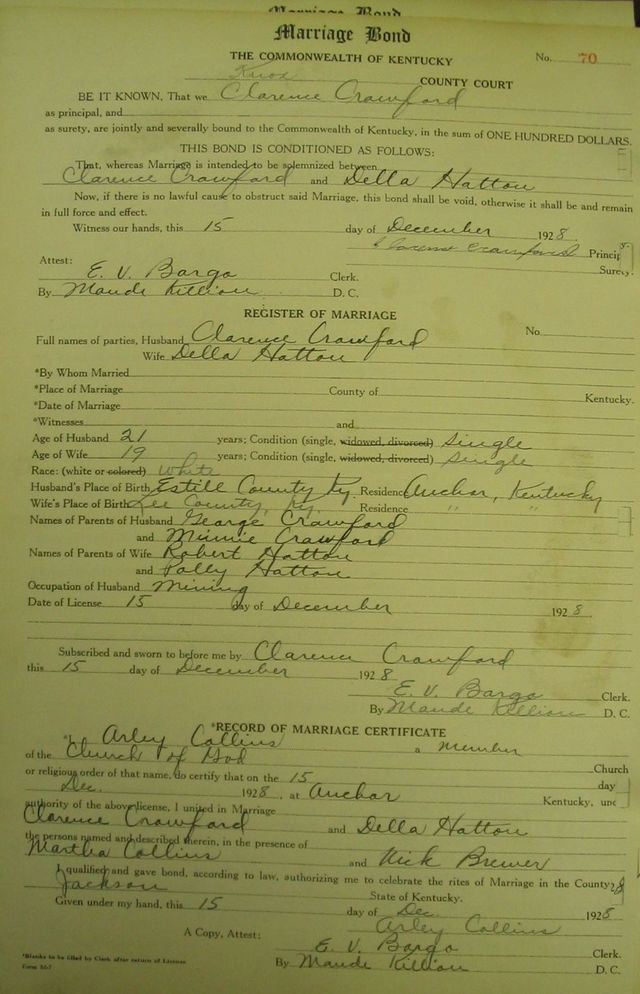 Marriage Bond
THE COMMONWEALTH OF KENTUCKY No. 70
Knox COUNTY COURT
BE IT KNOWN, That we Clarence Crawford
as principal, and
as surety, are jointly and severally bound to the Commonwealth of Kentucky, in the sum of ONE HUNDRED DOLLARS.
THIS BOND IS CONDITIONED AS FOLLOWS:
That, whereas Marriage is intended to be solemnized between
Clarence Crawford and Della Hatton
Now, if there is no lawful cause to obstruct said Marriage, this bond shall be void, otherwise it shall be and remain
in full force and effect.
Witness our hands, this 15 day of December 1928.
Clarence Crawford Princip
Surety.
Attest:
E. V. Bargo Clerk.
By Maude Killion D. C.
REGISTER OF MARRIAGE
Full names of parties, Husband Clarence Crawford No.
Wife Della Hatton
*By Whom Married
*Place of Marriage County of Kentucky.
*Date of Marriage
*Witnesses and
Age of Husband 21 years; Condition (single, widowed, divorced) Single
Age of Wife 19 years; Condition (single, widowed, divorced) Single
Race: (white or colored) White
Husband's Place of Birth Estill County Ky. Residence Anchor, Kentucky
Wife's Place of Birth Lee County, Ky. Residence " "
Names of Parents of Husband George Crawford
and Minnie Crawford
Names of Parents of Wife Robert Hatton
and Polly Hatton
Occupation of Husband Mining
Date of License 15 day of December 1928
Subscribed and sworn to before me by Clarence Crawford
this 15 day of December 1928
E. V. Bargo Clerk.
By Maude Killion D. C.
*RECORD OF MARRIAGE CERTIFICATE
*I, Arley Collins a member
of the Church of God Church
or religious order of that name, do certify that on the 15 day
Dec. 1928, at Anchor Kentucky, und
authority of the above license, I united in Marriage
Clarence Crawford and Della Hatton
the persons named and described therein, in the presence of
Martha Collins and Nick Brewer
I qualified and gave bond, according to law, authorizing me to celebrate the rites of Marriage in the County
Jackson State of Kentucky.
Given under my hand, this 15 day of Dec. 1928
Arley Collins
A Copy, Attest: E. V. Bargo Clerk.
By Maude Killion D. C.
*Blanks to be filled by Clerk after return of License